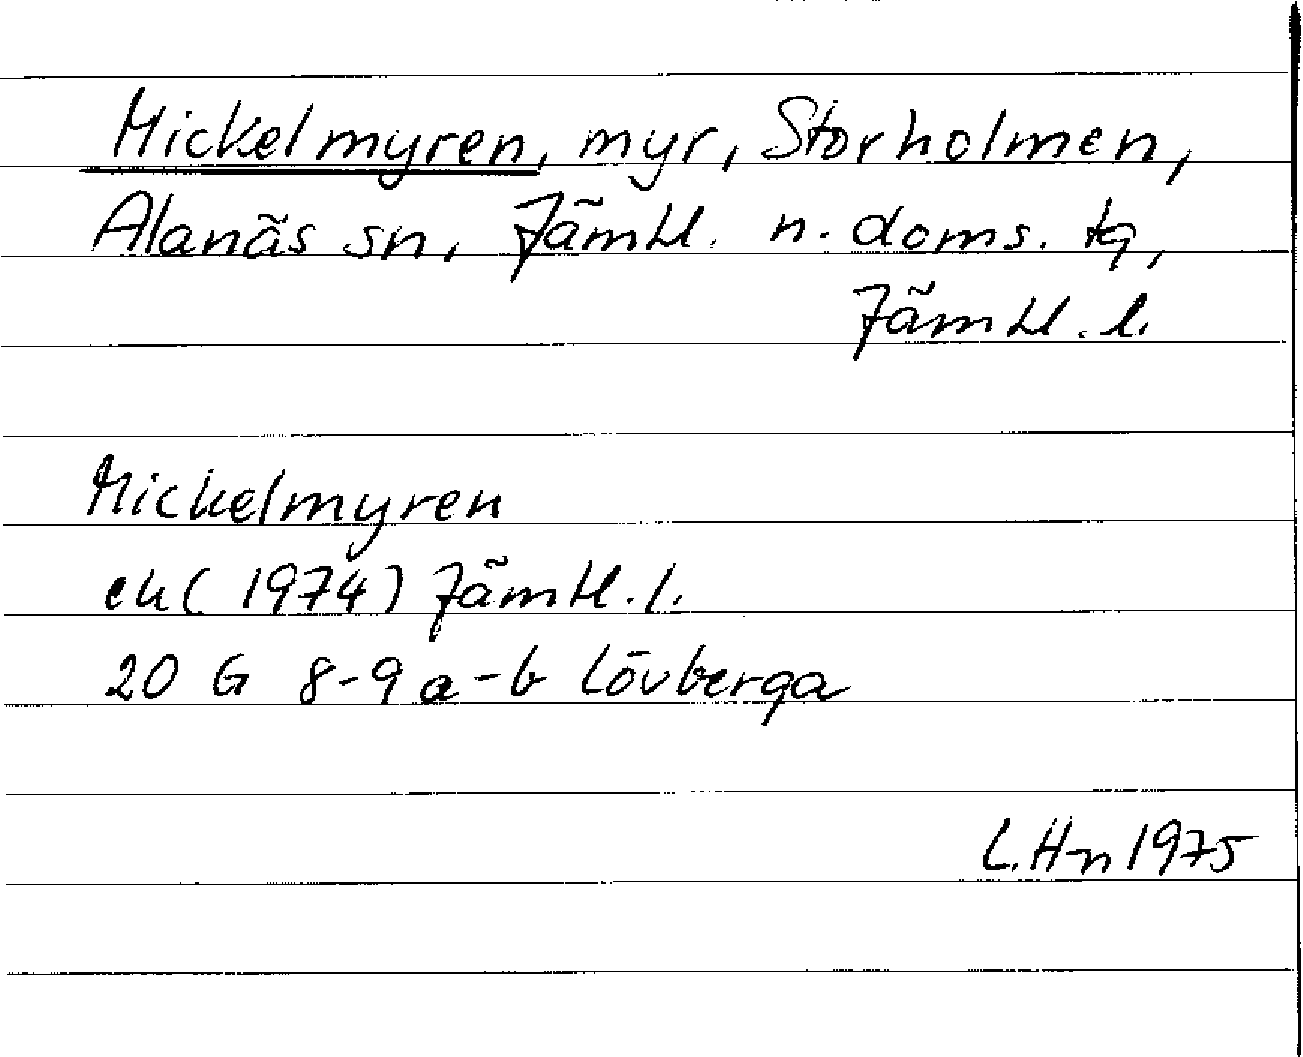 Mickelmyren, myr, Storholmen,
Alanäs sn, Jämtl. n. doms. tg,
Jämtl. l.
Mickelmyren
ek (1974) Jämtl. l.
20 G 8-9 a-b Lövberga
L. Hn 1975